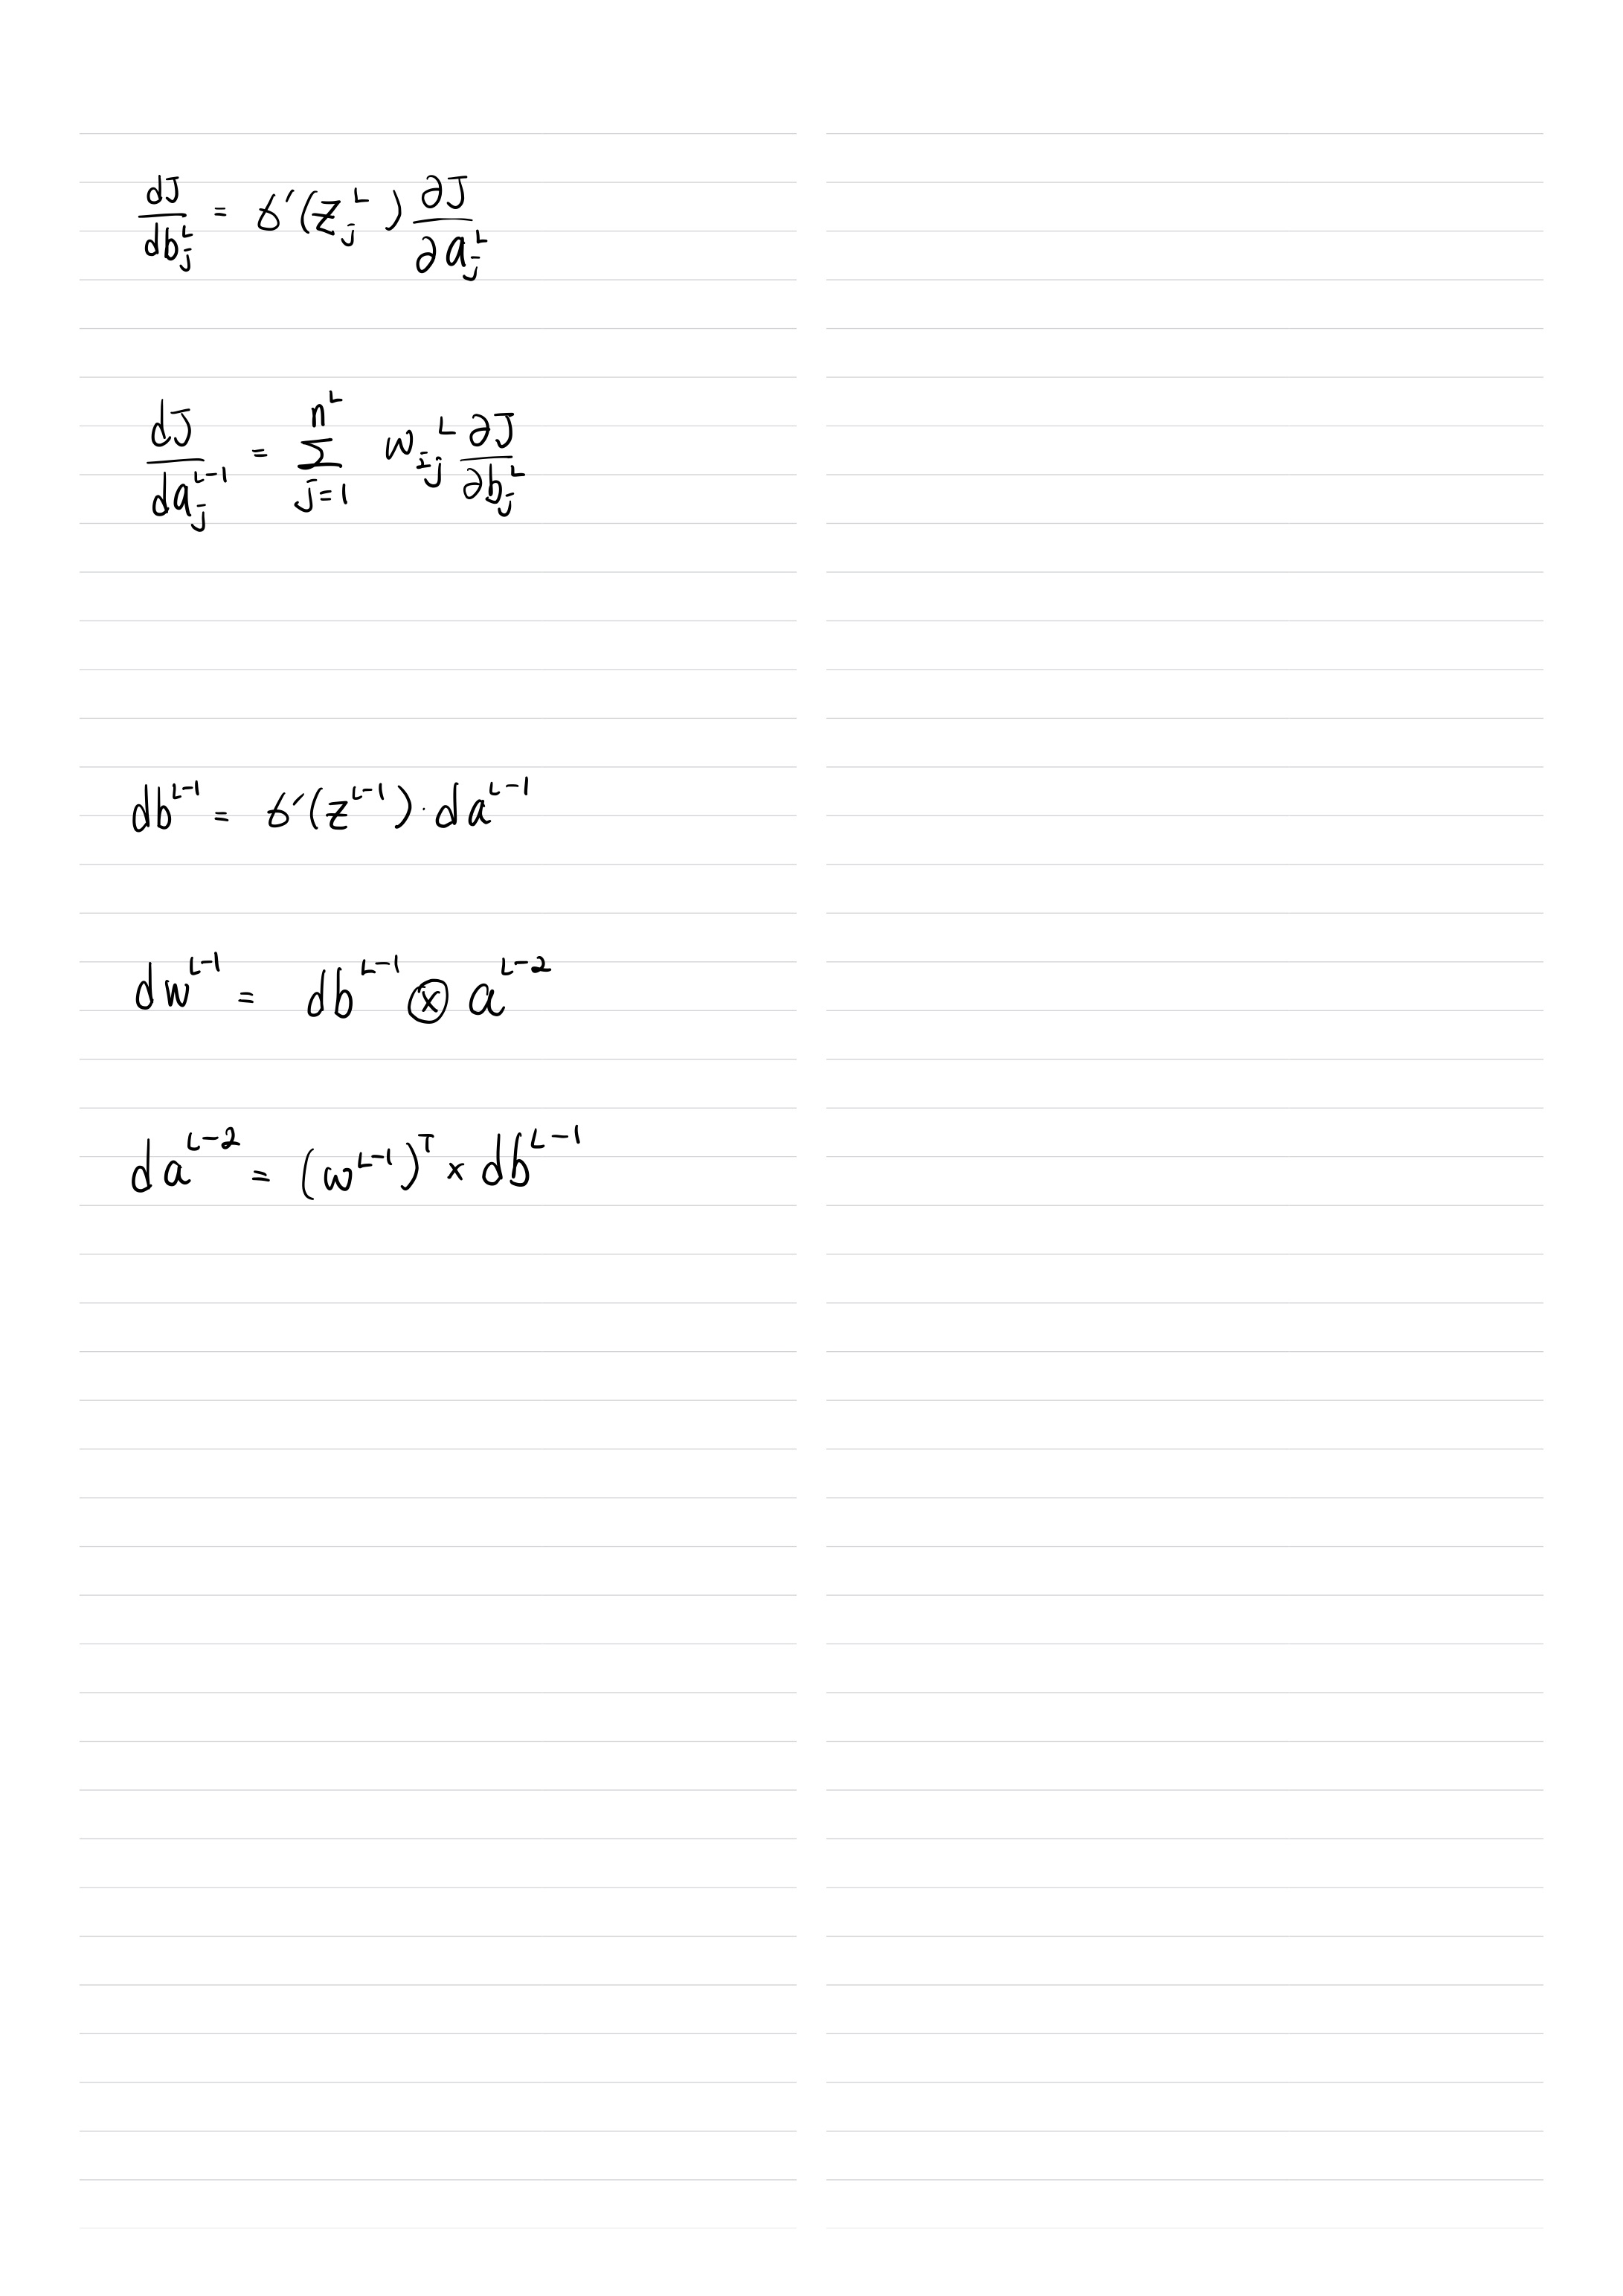 dJ/db_j^L = σ'(z_j^L) ∂J/∂a_j^L
dJ/da_j^{L-1} = Σ_{j=1}^{n^L} w_{ij}^L ∂J/∂b_j^L
db^{L-1} = σ'(z^{L-1}) · da^{L-1}
dw^{L-1} = db^{L-1} ⊗ a^{L-2}
da^{L-2} = (w^{L-1})^T × db^{L-1}